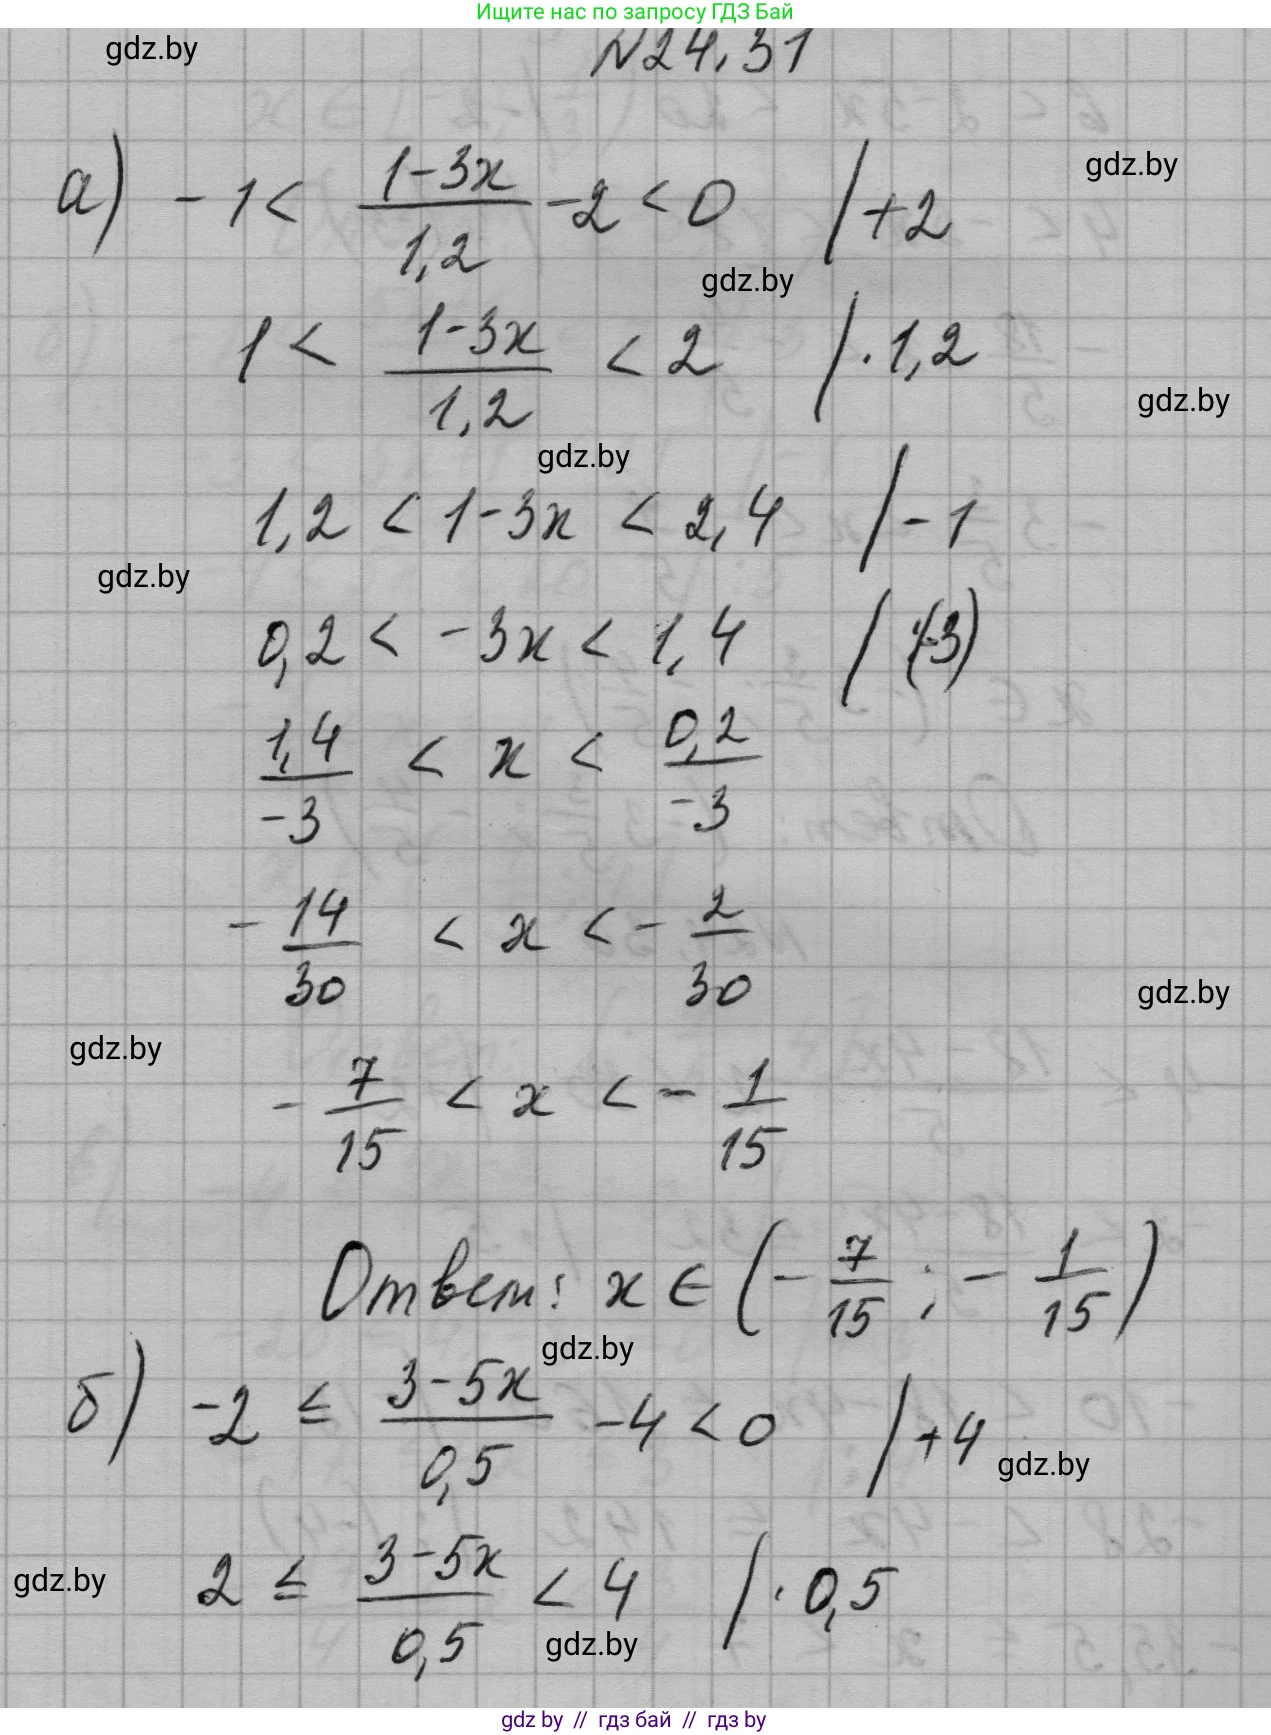 Ищите нас по запросу ГДЗ Бай
gdz.by
N24.31
а) -1 < (1-3x)/1,2 -2 < 0 /+2
gdz.by
gdz.by
1 < (1-3x)/1,2 < 2 /·1,2
gdz.by
gdz.by
1,2 < 1-3x < 2,4 /-1
gdz.by
0,2 < -3x < 1,4 /:(-3)
1,4/-3 < x < 0,2/-3
-14/30 < x < -2/30
gdz.by
gdz.by
-7/15 < x < -1/15
Ответ: x ∈ (-7/15; -1/15)
gdz.by
б) -2 ≤ (3-5x)/0,5 -4 < 0 /+4
gdz.by
gdz.by
2 ≤ (3-5x)/0,5 < 4 /·0,5
gdz.by
gdz by // гдз бай // гдз by